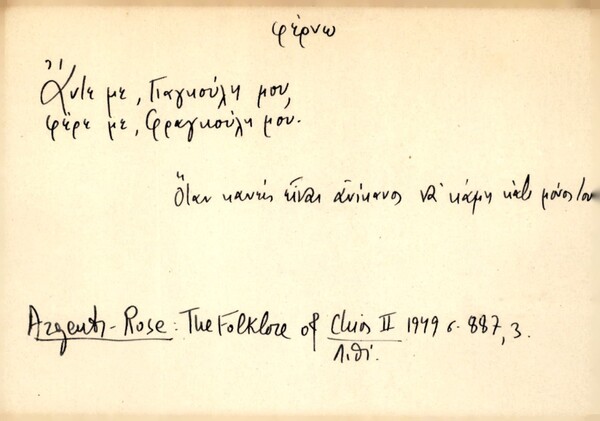 φέρνω
Ἄντε με, Γιαγκούλη μου,
φέρε με, Φραγκούλη μου.
Ὅταν κανείς εἶναι ἀνίκανος νά κάμη κάτι μόνος του
Argenti-Rose: The Folklore of Chios II 1949 σ. 887, 3.
Λιθί.